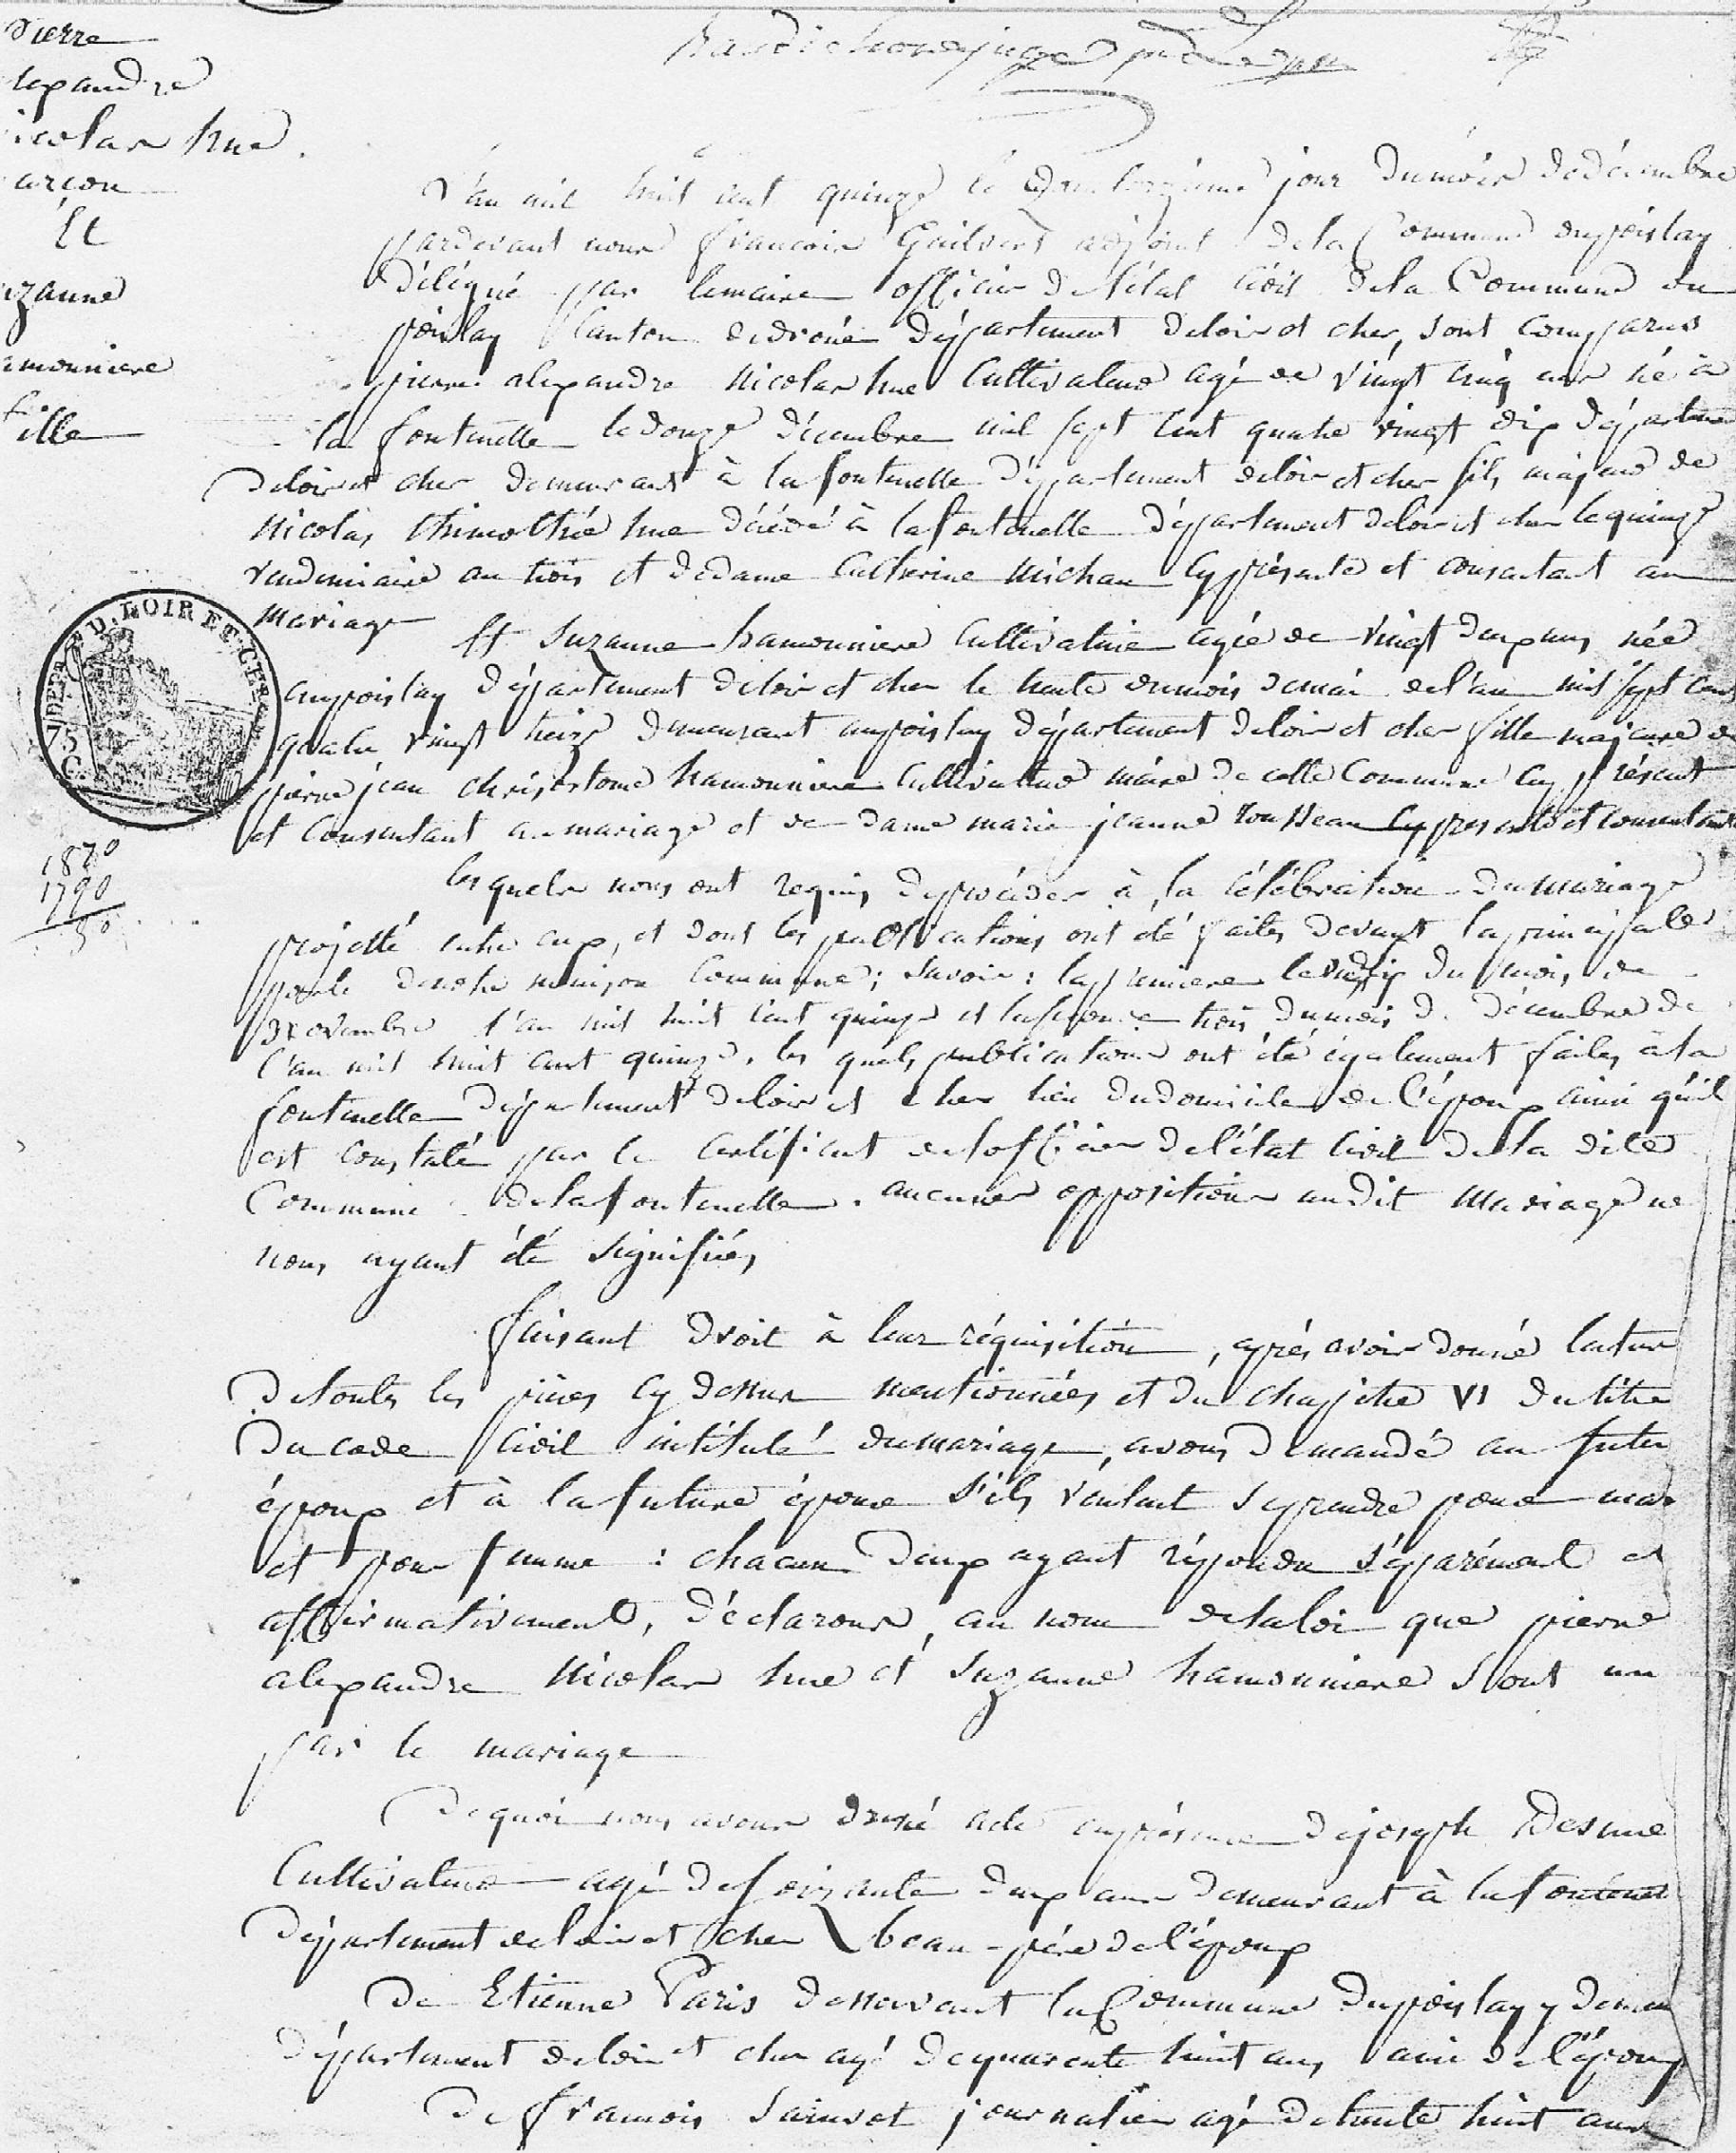 pierre
lexandre
icolas hue
arcon
Et
uzanne
amonniere
fille
L'an mil huit cent quinze le quatorzieme jour du mois de décembre
pardevant nous francois Guilbert adjoint de la Commune du poislay
Délégué par le maire officier de l'état civil de la Commune du
poislay Canton de droué Département de loir et cher, sont comparus
pierre alexandre nicolas hue Cultivateur agé de vingt cinq ans né à
la fontenelle le douze décembre mil sept cent quatre vingt dix départeme
de loir et cher demeurant à la fontenelle département de loir et cher fils majeur de
nicolas thimothée hue décédé à la fontenelle département de loir et cher le quinze
vendemiaire an trois et de dame Catherine michau cy présente et consentant au
mariage
Et Suzanne hamonniere Cultivatrice agée de vingt deux ans née
au poislay département de loir et cher le trente du mois de mai de l'an mil sept cent
quatre vingt treize demeurant au poislay département de loir et cher fille majeure de
pierre jean chrisostome hamonniere Cultivateur maire de cette Commune cy présent
et Consentant au mariage et de dame marie jeanne rousseau cy presente et consentante
DEPT D. LOIR ET CHER
75
C.
1820
1790
30
lesquels nous ont requis de procéder à la célébration du mariage
projetté entre eux, et dont les publications ont été faites devant la principale
porte de notre maison Commune; Savoir: la premiere le du mois de
novembre l'an mil huit cent quinze et la seconde trois du mois de décembre de
l'an mil huit cent quinze. les quels publications ont été également faites à la
fontenelle département de loir et cher lieu du domicile de l'époux ainsi qu'il
est constaté par le certificat de l'officier de l'état civil de la dite
Commune de la fontenelle. aucunes oppositions au dit mariage ne
nous ayant été signifiées
faisant droit à leur réquisition, après avoir donné lectur
de toutes les pièces cy dessus mentionnées et du chapitre VI du titre
du code civil intitulé du mariage, avons demandé au futur
époux et à la future épouse s'ils veulent se prendre pour mar
et pour femme: chacun d'eux ayant répondu séparément et
affirmativement, déclarons, au nom de la loi que pierre
alexandre nicolas hue et suzanne hamonniere sont un
par le mariage
De quoi nous avons dressé acte en présence de joseph Desnue
Cultivateur agé de soixante deux ans demeurant à la fontenel
département de loir et cher beau-père de l'époux
De Etienne Paris desservant la Commune du poislay y demeu
département de loir et cher agé de quarente huit ans ami de l'époux
De francois Sainsot journalier agé de trente huit ans